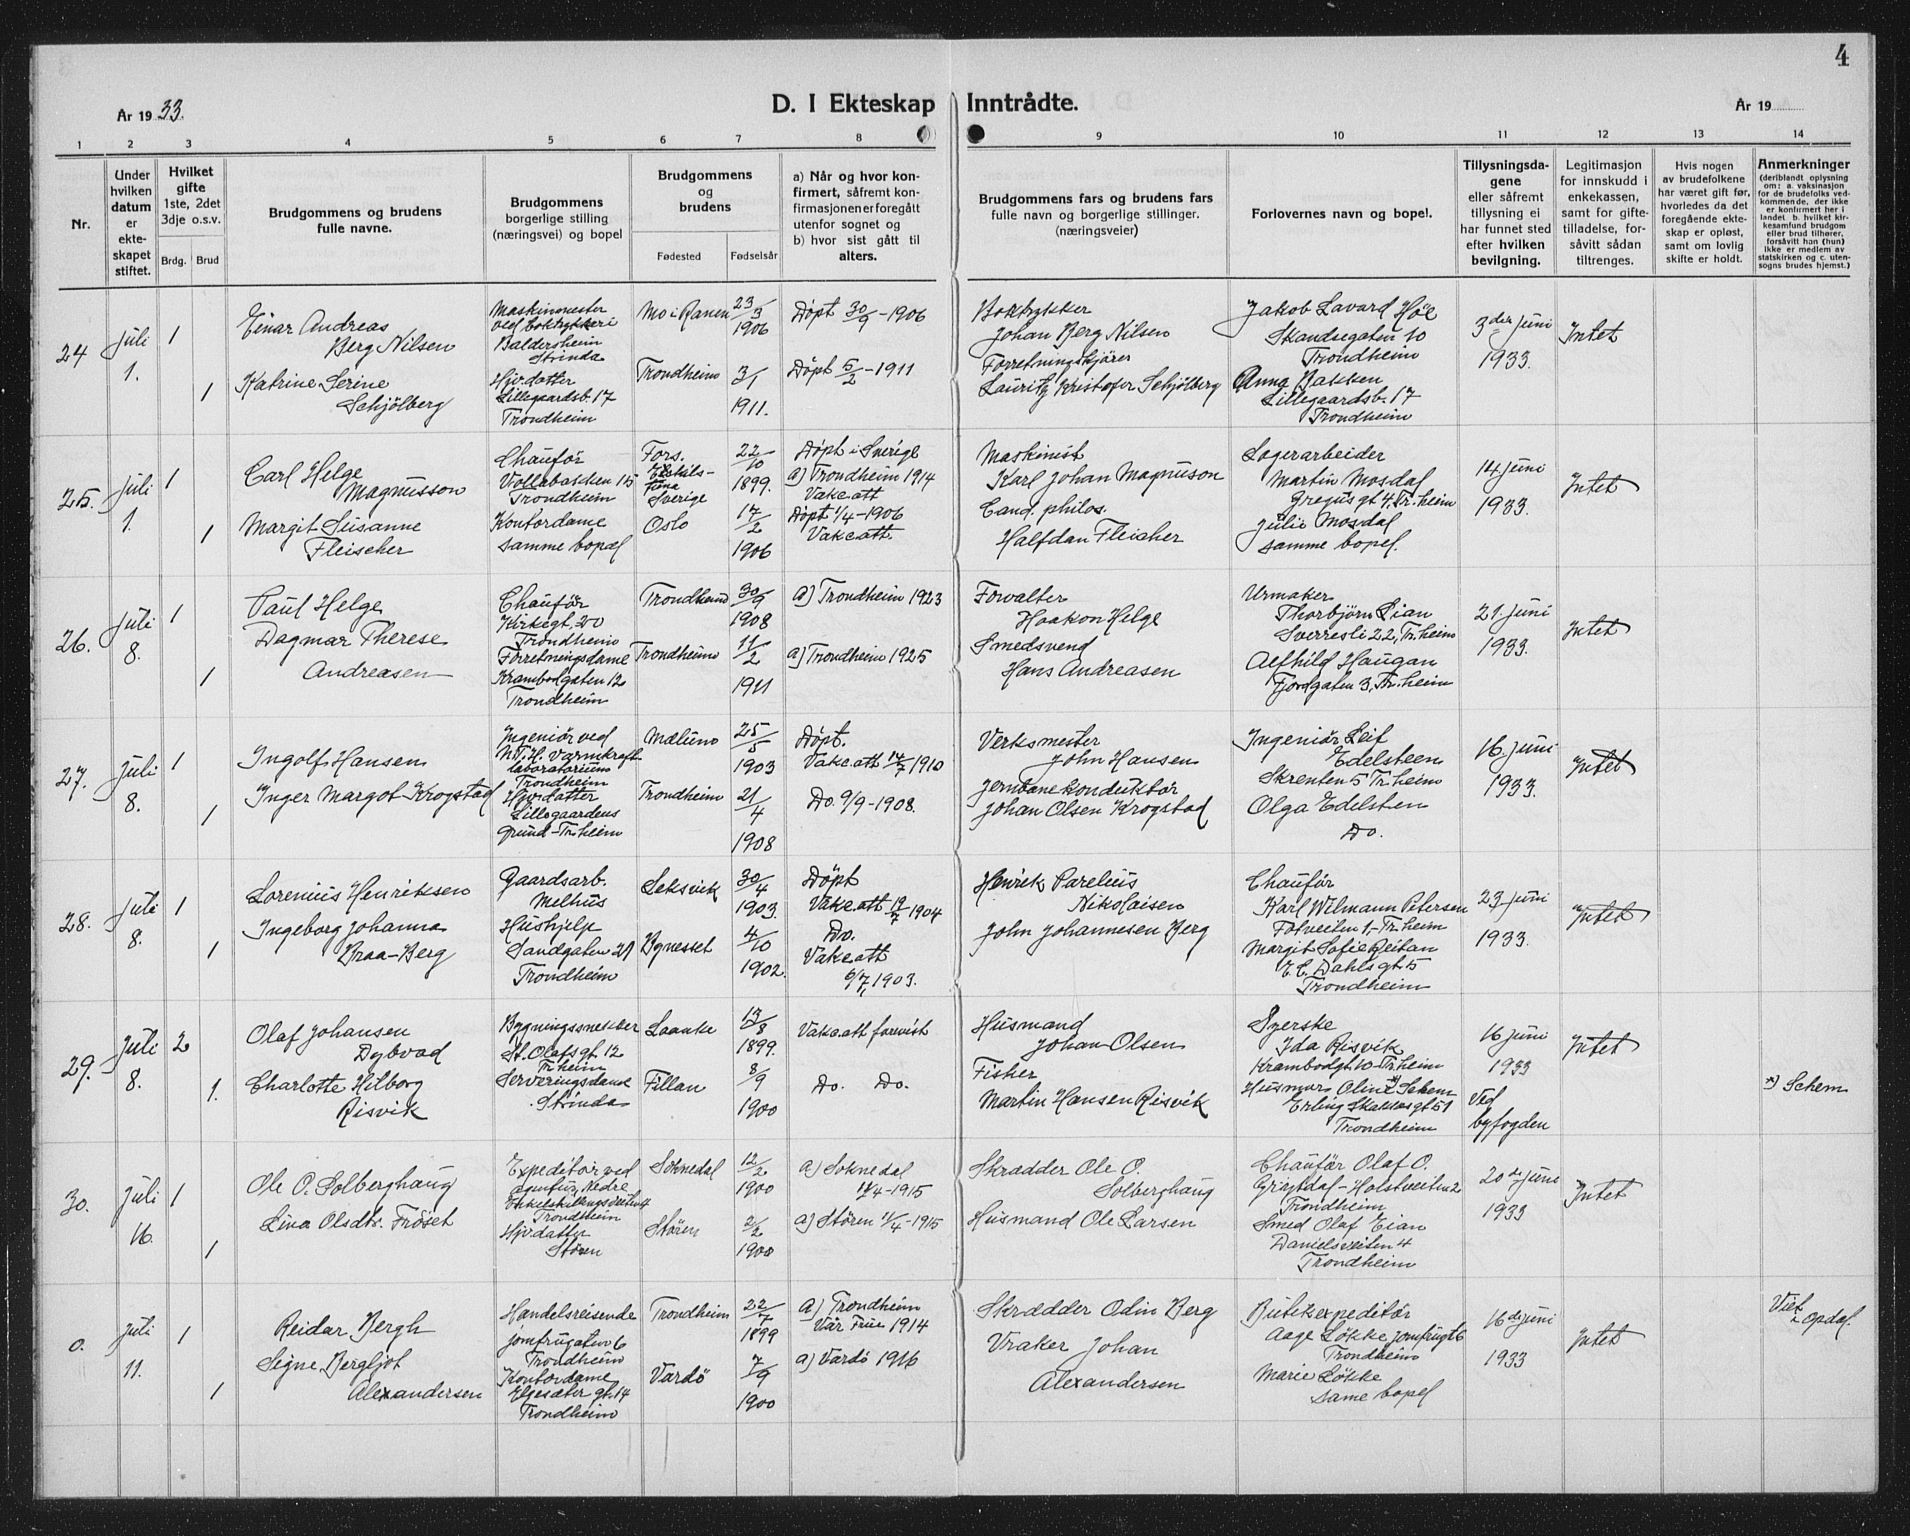 4
År 1933.
D. I Ekteskap Inntrådte.
År 19
1 2 3 4 5 6 7 8 9 10 11 12 13 14
Nr.
Under hvilken datum er ekteskapet stiftet.
Hvilket gifte 1ste, 2det 3dje o.s.v.
Brdg. Brud
Brudgommens og brudens fulle navne.
Brudgommens borgerlige stilling (næringsvei) og bopel
Brudgommens og brudens
Fødested Fødselsår
a) Når og hvor konfirmert, såfremt konfirmasjonen er foregått utenfor sognet og b) hvor sist gått til alters.
Brudgommens fars og brudens fars fulle navn og borgerlige stillinger. (næringsveier)
Forlovernes navn og bopel.
Tillysningsdagene eller såfremt tillysning ei har funnet sted efter hvilken bevilgning.
Legitimasjon for innskudd i enkekassen, samt for giftetilladelse, forsåvitt sådan tiltrenges.
Hvis nogen av brudefolkene har været gift før, hvorledes da det foregående ekteskap er opløst, samt om lovlig skifte er holdt.
Anmerkninger (deriblandt oplysning om: a. vaksinasjon for de brudefolks vedkommende, der ikke er konfirmert her i landet b. hvilket kirkesamfund brudgom eller brud tilhører, forsåvitt han (hun) ikke er medlem av statskirken og c. utensogns brudes hjemst.)
24 Juli 1. 1
Einar Andreas Berg Nilsen
Maskinmester ved boktrykkeri Baldersheim Strinda
Mo i Ranen 23/3 1906
Døpt 30/9-1906
Boktrykker Johan Berg Nilsen
Jakob Lavard Høe Skandsegaten 10 Trondheim
3die Juni 1933.
Intet
1
Katrine Serine Schjölberg
Hjv.datter Lillegaardsb. 17 Trondheim
Trondheim 3/1 1911.
Døpt 5/2-1911
Forretningskjører Lauritz Kristofer Schjölberg
Anna Bakken Lillegaardsb. 17 Trondheim
25. Juli 1. 1
Carl Helge Magnusson
Chaufør Vollabakken 15 Trondheim
Fors. Eskilstuna Sverige 22/10 1899.
Døpt i Sverige a) Trondheim 1914 Vakc.att
Maskinist Karl Johan Magnuson
Lagerarbeider Martin Mosdal Gregusgt 4, Tr.heim
14 Juni 1933.
Intet
1
Margit Susanne Fleischer
Kontordame samme bopæl
Oslo 17/2 1906
Døpt 1/4-1906 Vakc.att.
Cand. philos. Halfdan Fleicher
Julie Mosdal samme bopel.
26. Juli 8. 1
Paul Helge
Chaufør Kirkegt. 20 Trondheim
Trondheim 30/9 1908
a) Trondheim 1923
Forvalter Haakon Helge
Urmaker Thorbjørn Lian Sverresli 22, Tr.heim
21 Juni 1933.
Intet
1
Dagmar Therese Andreasen
Forretningsdame Krambodgaten 12 Trondheim
Trondheim 11/2 1911
a) Trondheim 1925
Smedsvend Hans Andreasen
Alfhild Haugan Fjordgaten 3, Tr.heim
27. Juli 8. 1
Ingolf Hansen
Ingeniør ved N.T.H. Varmkraftlaboratorium Trondheim
Mælum 25/5 1903
Døpt. Vakc.att 14/7 1910
Verksmester John Hansen
Ingeniør Leif Edelsteen Skrenten 5 Tr.heim
16. Juni 1933.
Intet
1
Inger Margot Krogstad
Hjv.datter Lillegaardens grund - Tr.heim
Trondheim 21/4 1908
Do. 9/9-1908.
Jernbanekonduktør Johan Olsen Krogstad
Olga Edelsteen Do.
28. Juli 8. 1
Lorenius Henriksen
Gaardsarb. Melhus
Leksvik 30/4 1903.
Døpt Vakc.att 19/7 1904
Henrik Parelius Nikolaisen
Chaufør Karl Wilmann Petersen Fotveiten 1,- Tr.heim
23 Juni 1933.
Intet
1
Ingeborg Johanna Braa-Berg
Hushjelp Sandgaten 29 Trondheim
Bynesset 4/10 1902.
Do. Vakc.att 6/7, 1903.
John Johannesen Berg
Margit Sofie Reitan E. C. Dahlsgt. 5 Trondheim
29. Juli 8. 2
Olaf Johansen Dybvad
Bygningssnekker St. Olafsgt. 12 Tr.heim
Laanke 13/8 1899.
Vakc.att forevist
Husmand Johan Olsen
Syerske Ida Risvik Krambodgt 10 - Tr.heim
16 Juni 1933 Ved byfogden
Intet
1.
Charlotte Hilborg Risvik
Serveringsdame Strinda
Fillan 8/9 1900
Do. Do.
Fisher Martin Hansen Risvik
Husmor Oline *) Schem Erling Skakkesgt 51 Trondheim
*) Schem
30. Juli 16. 1
Ole O. Solberghaug
Expeditør ved Nedre Enkelskillingsveiten 4 Trondheim
Soknedal 12/2 1900
a) Soknedal 11/4-1915
Skradder Ole O. Solberghaug
Chaufør Olaf O. Holstveiten 2 Trondheim
20de Juni 1933
Intet
1
Lina Olsdtr. Fröset
Hjv.datter Støren
Støren 2/2 1900
a) Støren 11/4-1915
Husmand Ole Larsen
Smed Olaf Eian Danielsveiten 4 Trondheim
0. Juli 11. 1
Reidar Bergh
Handelsreisende Jomfrugaten 6 Trondheim
Trondheim 22/7 1899
a) Trondheim Vår Frue 1914
Skrædder Odin Berg
Butikexpeditør Aage Løkke Jomfrugt 6 Trondheim
16de Juni 1933
Intet
Viet i Opdal.
1
Signe Bergljot Alexandersen
Kontordame Elgesæter gt. 14 Trondheim
Vardö 7/9 1900
a) Vardö 1916
Vraker Johan Alexandersen
Marie Løkke same bopel